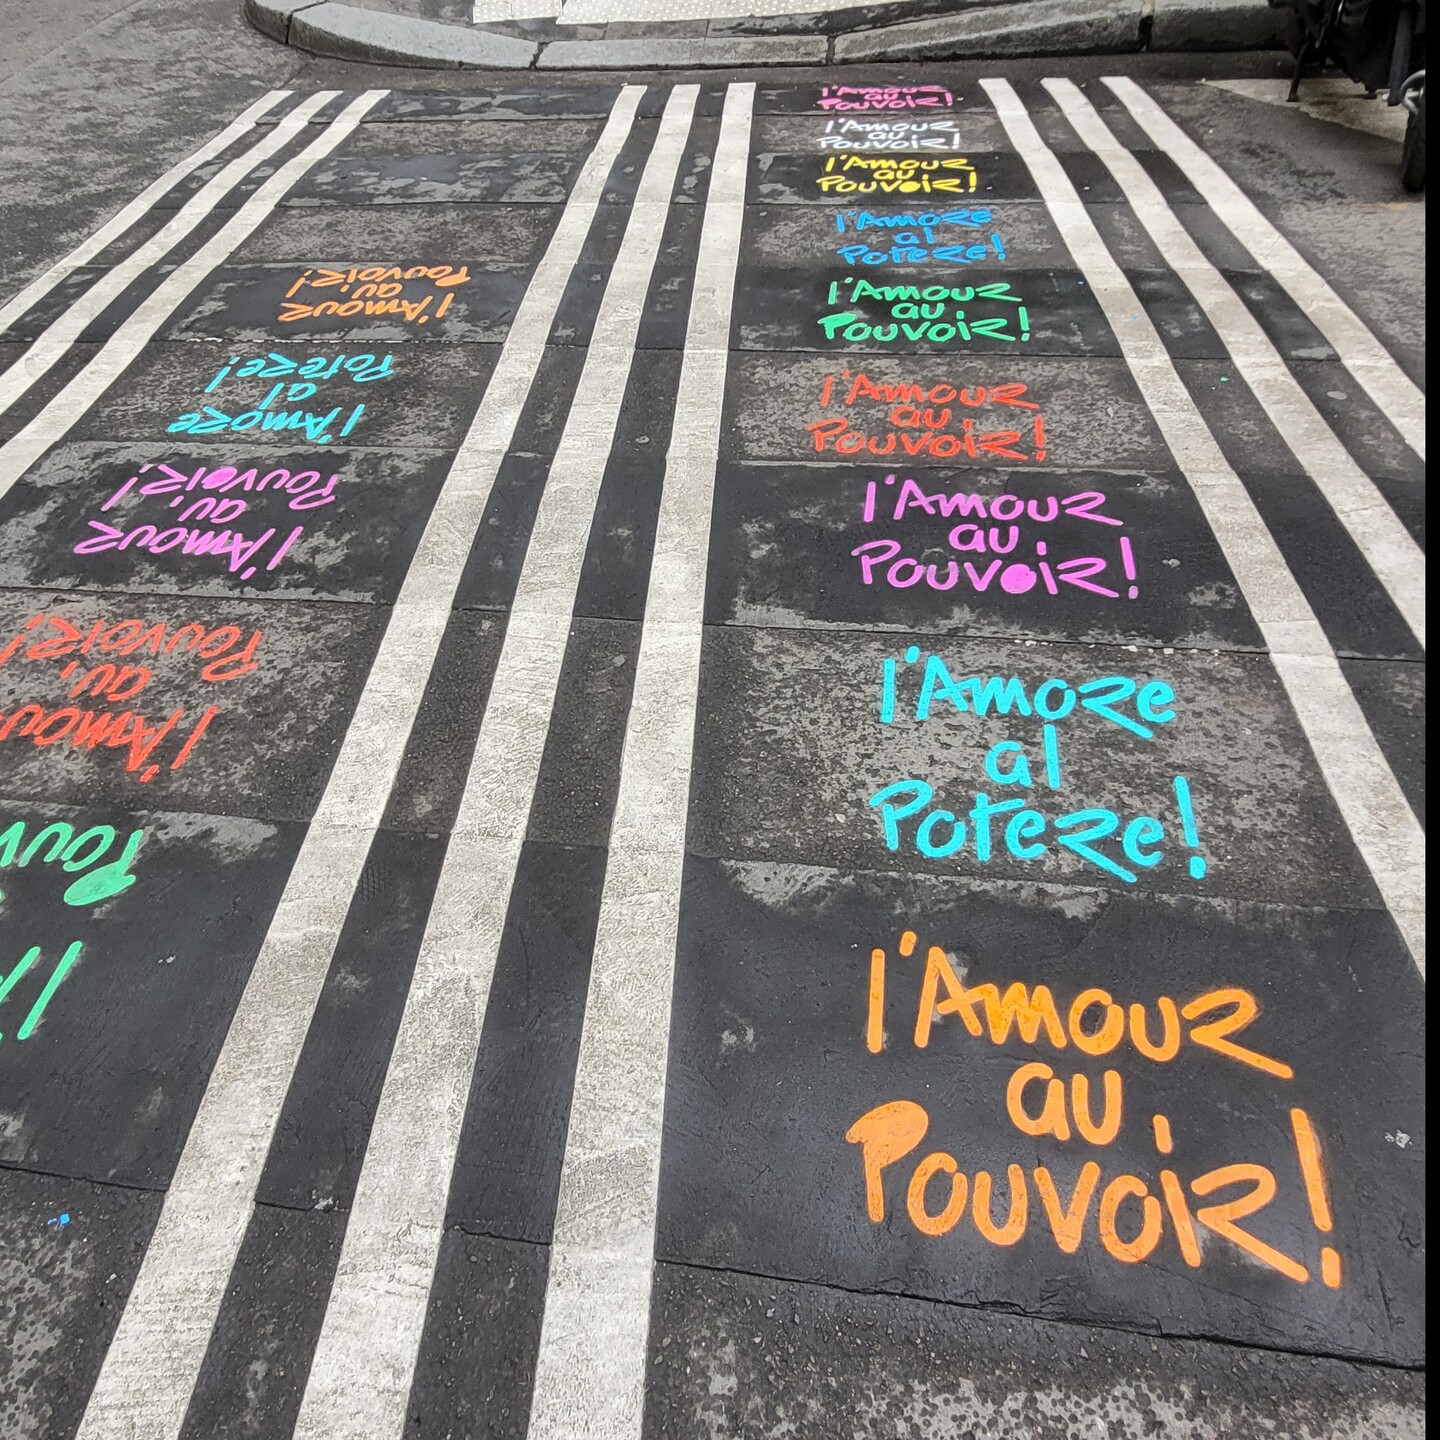 l'Amour
au
Pouvoir!
l'Amour
au
Pouvoir!
l'Amour
au
Pouvoir!
l'Amore
al
Potere!
l'Amour
au
Pouvoir!
l'Amour
au
Pouvoir!
l'Amour
au
Pouvoir!
l'Amore
al
Potere!
l'Amour
au
Pouvoir!
l'Amour
au
Pouvoir!
l'Amore
al
Potere!
l'Amour
au
Pouvoir!
l'Amou
au
Pouvoir!